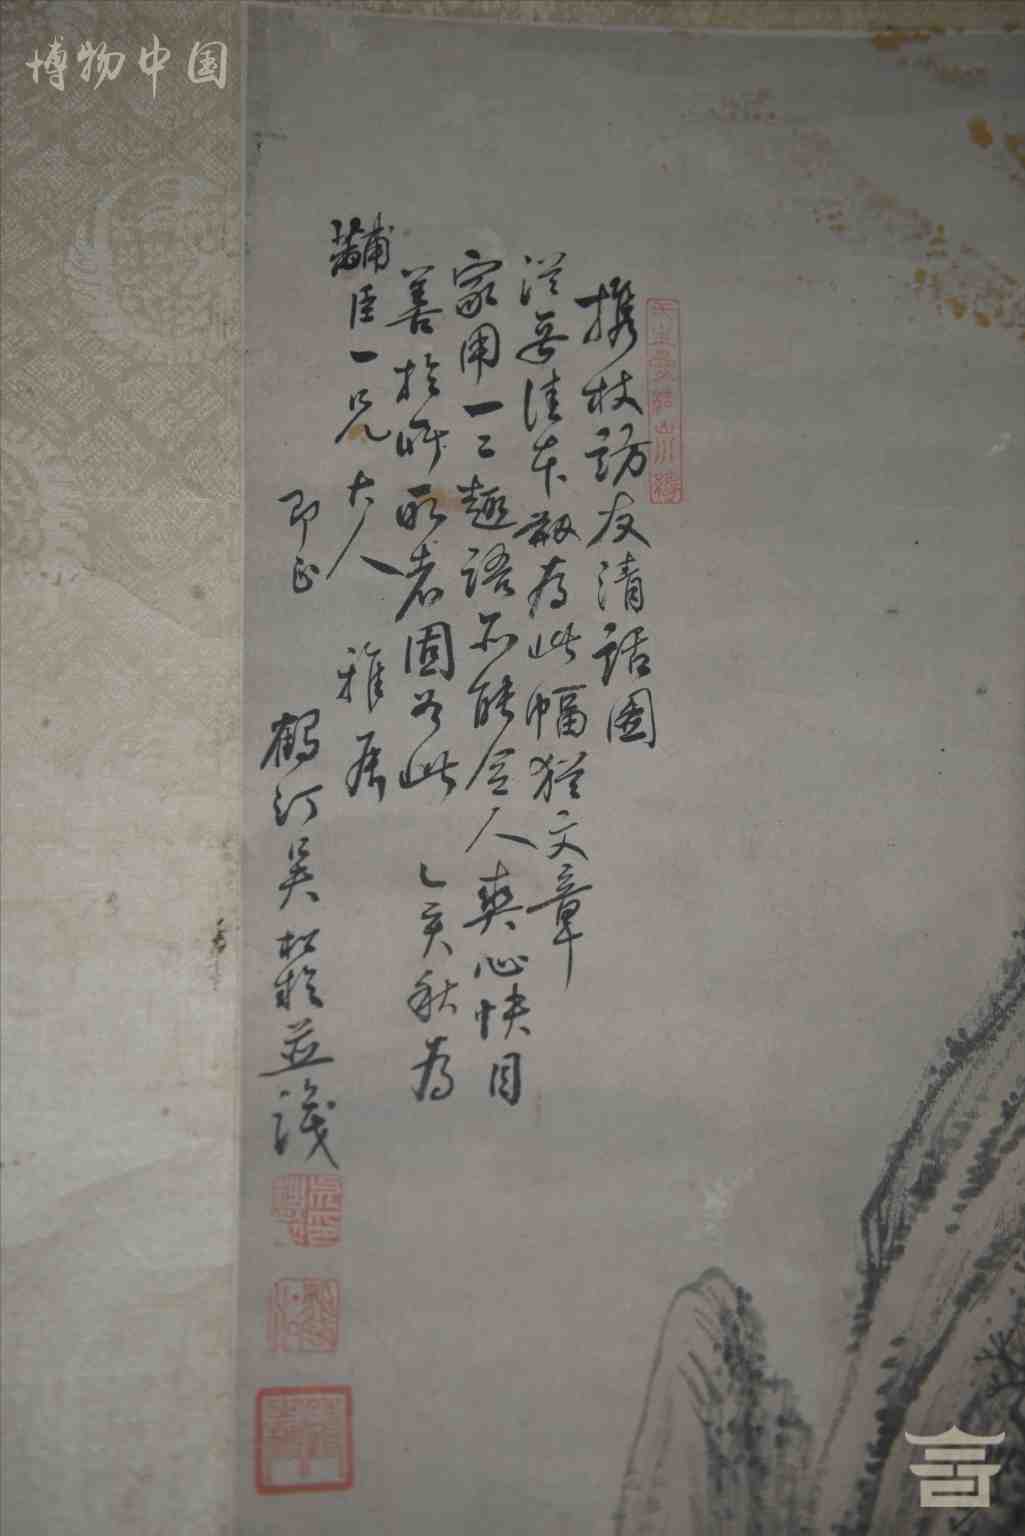 博物中国
携杖訪友清話圖
從無佳本敬為此幅猶文章
家用一二趣語亦能令人爽心快目
善於師承者固如此 乙亥秋為
黼臣一兄大人 雅屬
即正 鶴汀吳松齡並識